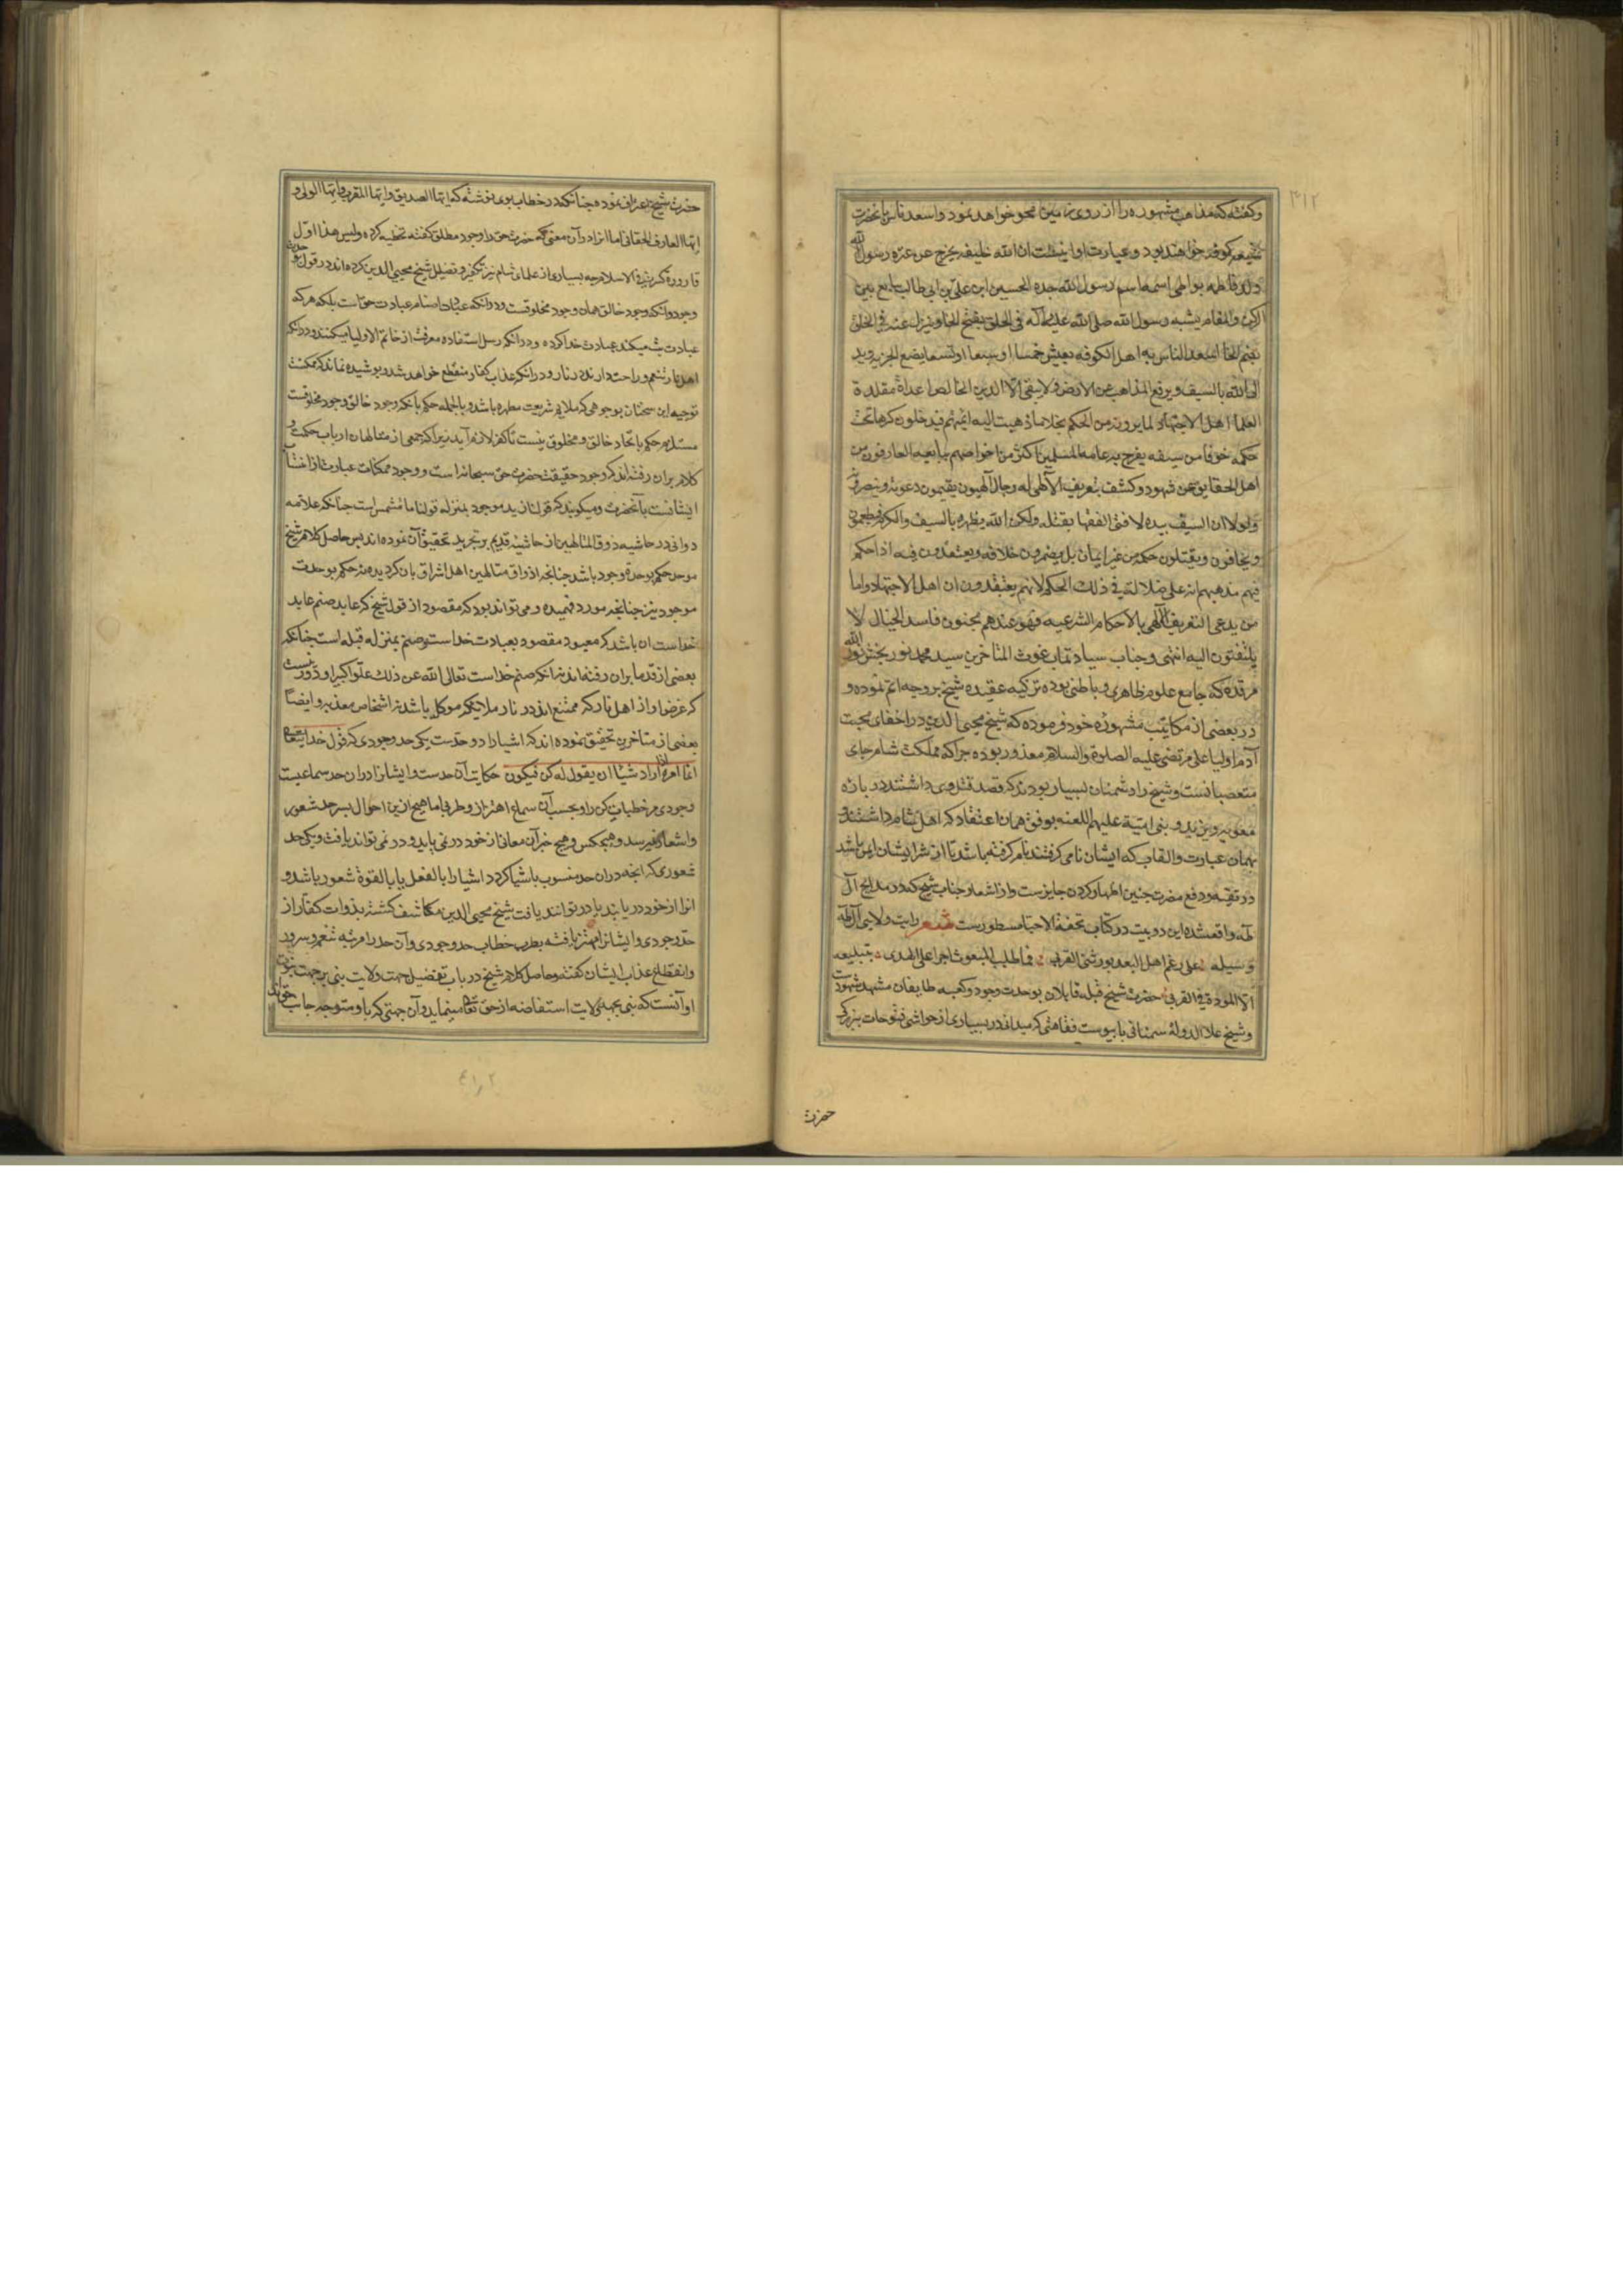 ۳۱۲
وکفته که مذاهب مشهوره را از روی زمین محو خواهد نمود واسعد ناس بآنحضرت
شیعهٔ کوفه خواهند بود وعبارت او اینست ان الله خلیفه یخرج من عترة رسول الله
ولد فاطمه یواطی اسمه اسم رسول الله جده الحسین ابن علی بن ابی طالب یبایع بین
الرکن والمقام یشبه رسول الله صلی الله علیه وآله فی الخلق بفتح الخا وینزل عنه فی الخلق
بضم الخا اسعد الناس به اهل الکوفه یعیش خمسا او سبعا او تسعا یضع الجزیه وید
الی الله بالسیف ویرفع المذاهب من الارض فلا یبقی الا الدین الخالص اعداؤه مقلدة
العلما اهل الاجتهاد لما یرونه من الحکم بخلاف ما ذهبت الیه ائمتهم فیدخلون کرها تحت
حکمه خوفا من سیفه یفرح به عامة المسلمین اکثر من خواصهم یبایعه العارفون من
اهل الحقایق عن شهود وکشف بتعریف الآلهی له رجال آلهیون یقیمون دعوته وینصرونه
ولولا ان السیف بیده لافتی الفقها بقتله ولکن الله یظهره بالسیف والکرم فیطمعون
ویخافون ویقبلون حکمه من غیر ایمان بل یضمرون خلافه ویعتقدون فیه اذا حکم
فیهم مذهبهم انه علی ضلالة فی ذلك الحکم لانهم یعتقدون ان اهل الاجتهاد واما
من یدعی التعریف الآلهی بالاحکام الشرعیه فهو عندهم مجنون فاسد الخیال لا
یلتفتون الیه انتهی وجناب سیادتماب غوث المتاخرین سید محمد نوربخش نور الله
مرقده که جامع علوم ظاهری وباطنی بوده تزکیه عقیده شیخ بر وجه اتم نموده و
در بعضی از مکاتیب مشهوره خود فرموده که شیخ محیی الدین در اخفای محبت
آدم اولیا علی مرتضی علیه الصلوة والسلام معذور بوده جرا که مملکت شام جای
متعصبانست وشیخ را دشمنان بسیار بودند که قصد قتل وی داشتند در باره
معویه ویزید وبنی امیة علیهم اللعنه بوفق همان اعتقاد که اهل شام داشتند و
بهمان عبارت والقاب که ایشان نام می گرفتند نام گرفته باشد تا از شر ایشان ایمن باشد
در تقیه ودفع مضرت جنین اظهار کردن جایزست واز اشعار جناب شیخ که در مدایح آل
طه واقع شده این دو بیت در کتاب تحفة الاحبا مسطورست شعر رایت ولایی آل طه
وسیله علی رغم اهل البعد یورثنی القربی فما طلب المبعوث اجرا علی الهدی بتبلیغه
الا المودة فی القربی حضرت شیخ قبله قایلان بوحدت وجود وکعبه طایفان مشهد شهودست
وشیخ علاء الدوله سمنانی با یبوست فقاهتی که میداند در بسیاری از حواشی فتوحات ببزرگی
حضرت
حضرت شیخ اعتراف نموده جنانکه در خطاب بوی نوشته که ایها الصدیق وایها المقرب وایها الولی و
ایها العارف الحقانی اما انرا در آن معنی که حضرت حق را وجود مطلق گفته تخطیه کرده ولیس هذا اول
قارورة کسرت فی الاسلام چه بسیاری از علمای شام نیز تکفیر وتضلیل شیخ محیی الدین کرده اند در قول او بوحدت
وجود وانکه وجود خالق همان وجود مخلوقست ودر انکه عبادت اصنام عبادت حق است بلکه هر که
عبادت بت میکند عبادت خدا کرده ودر انکه رسل استفاده معرفت از خاتم الاولیا میکنند ودر انکه
اهل نار تنعم وراحت دارند در نار ودر انکه عذاب کفار منقطع خواهد شد وپوشیده نماند که ممکنست
توجیه این سخنان بوجوهی که ملایم شریعت مطهره باشد وبالجمله حکم بآنکه وجود خالق وجود مخلوقست
مستلزم حکم باتحاد خالق ومخلوق نیست تا کفر لازم آید زیرا که جمعی از متالهان ارباب حکمت و
کلام بران رفته اند که وجود حقیقت حضرت حق سبحانه است ووجود ممکنات عبارت از انتساب
ایشانست بآنحضرت ومیگویند که قولنا زید موجود بمنزله قولنا ماء مشمس است جنانکه علامه
دوانی در حاشیه ذوق المتالهین از حاشیه قدیم بر تجرید تحقیق آن نموده اند پس حاصل کلام شیخ
موحد حکم بوحدة وجود باشد جنانجه اذواق متالهین اهل اشراق بان گردیده نه حکم بوحدت
موجود نیز جنانجه مورد فهمیده ومی تواند بود که مقصود از قول شیخ که عابد صنم عابد
خداست ان باشد که معبود مقصود بعبادت خداست وصنم بمنزله قبله است جنانکه
بعضی از قدما بران رفته اند نه انکه صنم خداست تعالی الله عن ذلك علوا کبیرا ودور نیست
که غرض او از اهل نار که ممتنع اند در نار ملائکه موکل باشد نه اشخاص معذبه وایضاً
بعضی از متاخرین تحقیق نموده اند که اشیا را دو حدست یکی حد وجودی که قول خدایتعالی
انما امره اذا اراد شیئا ان یقول له کن فیکون حکایت آن حدست وایشانرا در ان حد سماعیست
وجودی مر خطاب کن را وبحسب آن سماع اهتزاز وطربی اما هیچ ازین احوال بسرحد شعور
واشعار نمیرسد وهیچکس وهیچ خبر آن معانی از خود در نمی یابد ودر نمی تواند یافت ویکی حد
شعوری که انجه در ان حد منسوب باشیا گردد اشیا را بالفعل یا بالقوة شعور باشد و
انرا از خود دریابند یا در توانند یافت شیخ محیی الدین مکاشف گشته بذوات کفار از
حد وجودی وایشانرا مهتز یافته بطرب خطاب حد وجودی وآن حد را مرتبه تنعم وسرور
وانقطاع عذاب ایشان گفته وحاصل کلام شیخ در باب تفضیل جهت ولایت نبی بر جهت نبوت
او آنست که نبی بجهة ولایت استفاضه از حق تعالی مینماید وآن جهتی که باو متوجه جانب